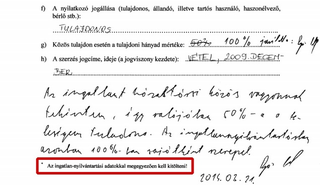 f) A nyilatkozó jogállása (tulajdonos, állandó, illetve tartós használó, haszonélvező,
bérlő stb.):
TULAJDONOS
g) Közös tulajdon esetén a tulajdoni hányad mértéke: 50% 100% javította:
h) A szerzés jogcíme, ideje (a jogviszony kezdete): VÉTEL, 2009. DECEM-
BER
Az ingatlant házastársi közös vagyonnak
tekintem, így valójában 50%-a a
tulajdona. Az ingatlannyilvántartásban
azonban 100%-ban sajátként szerepel.
* Az ingatlan-nyilvántartási adatokkal megegyezően kell kitölteni!